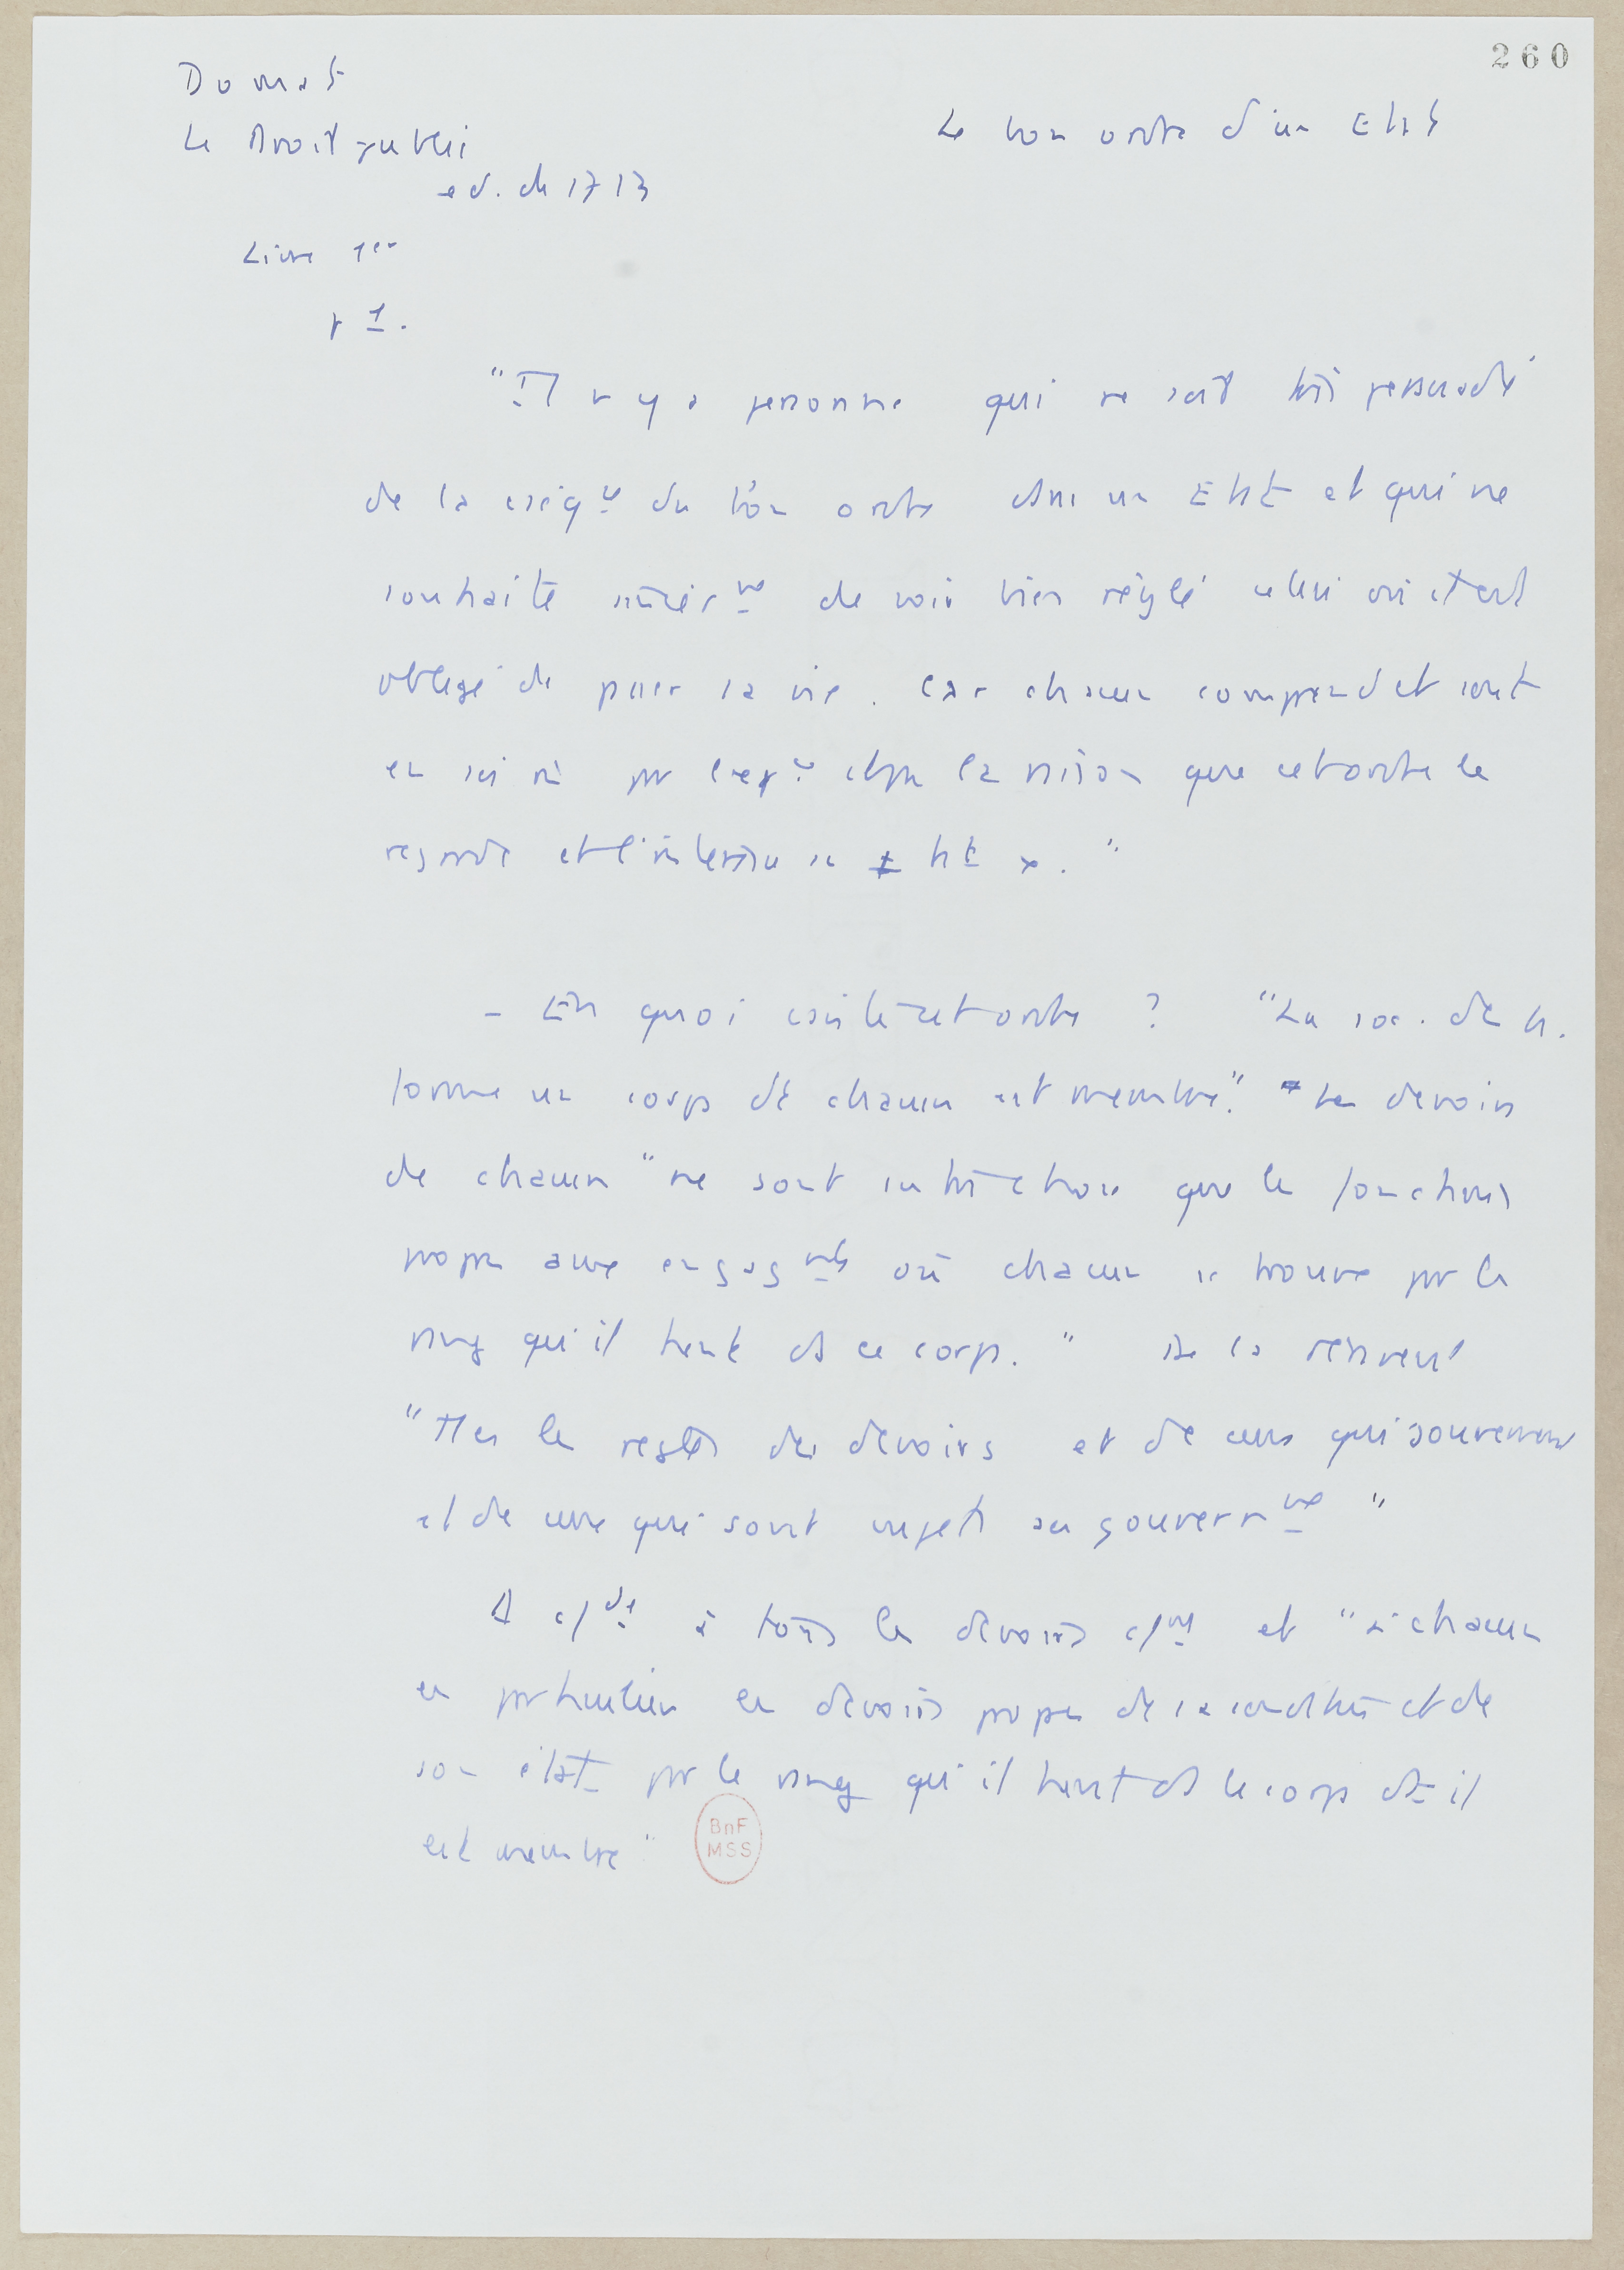 260
Domat
Le Droit public
ed. de 1713
Le bon ordre d'un Etat
Livre 1er
p 1.
"Il n y a personne qui ne soit très persuadé
de la cséqce du bon ordre dans un Etat et qui ne
souhaite sincèrmt de voir bien réglé celui où il est
obligé de passer sa vie. Car chacun comprend et sent
en soi mê par l'expce et par la raison que cet ordre le
regarde et l'intéresse
- En quoi csiste cet ordre ? "La soc. des h.
forme un corps dt chacun est membre." Les devoirs
de chacun "ne sont autre chose que les fonctions
propres aux engagmts où chacun se trouve par le
rang qu'il tient ds ce corps." De là dérivent
"Ttes les règles des devoirs et de ceux qui gouvernent
et de ceux qui sont sujets au gouvernmt"
à tous les devoirs et "à chacun
en particulier les devoirs propres de sa condition et de
son état par le rang qu'il tient ds le corps dt il
est membre"
BnF
MSS